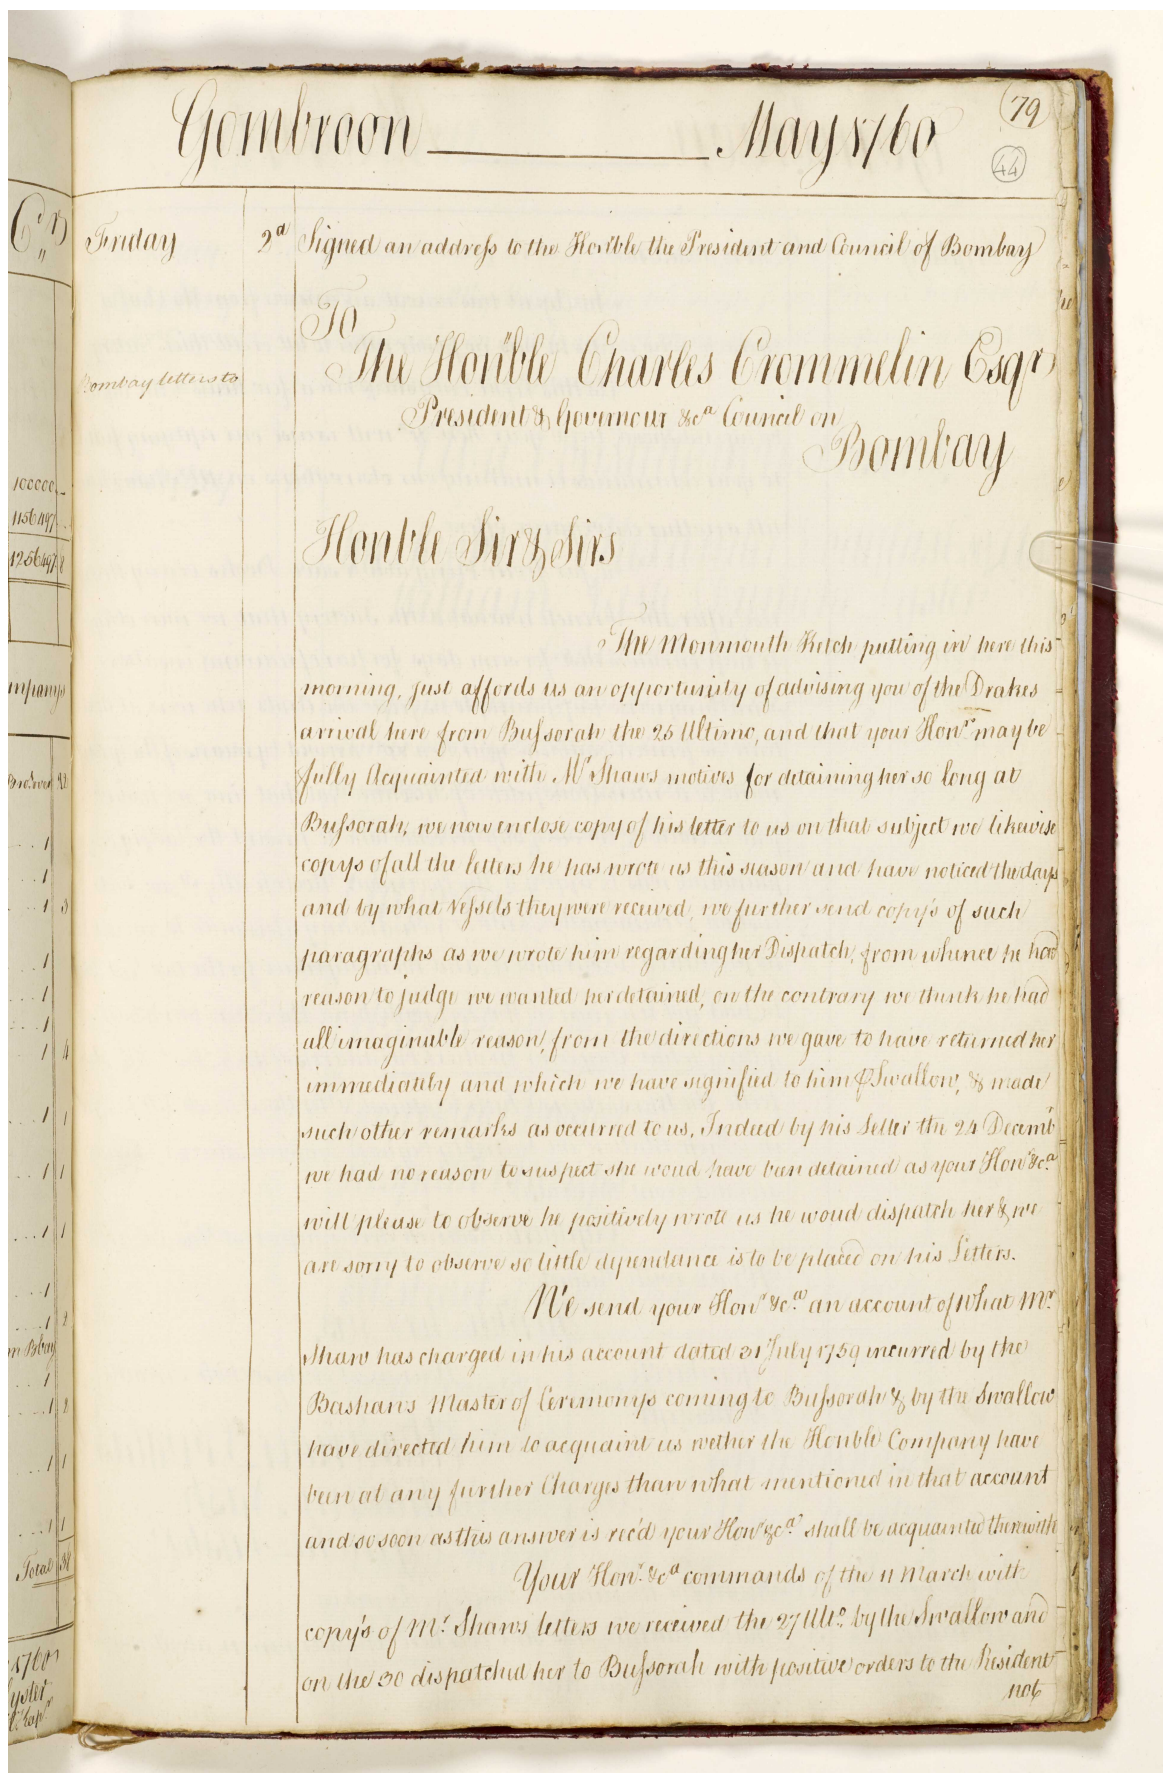 Gombroon May 1760
79
44
Friday 2d Signed an address to the Hon'ble the President and Council of Bombay
To
The Hon'ble Charles Crommelin Esqr
Bombay letters to
President & Governour &ca Council on
Bombay
Honble Sir & Sirs
The Monmouth Ketch putting in here this
morning, just affords us an opportunity of advising you of the Drakes
arrival here from Bussorah the 25 Ultimo, and that your Honrs may be
fully Acquainted with Mr Shaws motives for detaining her so long at
Bussorah, we now enclose copy of his letter to us on that subject we likewise
copys of all the letters he has wrote us this season and have noticed the days
and by what Vessels they were received, we further send copy's of such
paragraphs as we wrote him regarding her Dispatch, from whence he had
reason to judge we wanted her detained, on the contrary we think he had
all imaginable reason, from the directions we gave to have returned her
immediately and which we have signified to him ⅌ Swallow, & made
such other remarks as occurred to us. Indeed by his Letter the 24 Decemb
we had no reason to suspect she woud have been detained as your Honr &ca
will please to observe he positively wrote us he woud dispatch her & we
are sorry to observe so little dependance is to be placed on his Letters.
We send your Honr &ca an account of what Mr
Shaw has charged in his account dated 31 July 1759 incurred by the
Bashaws Master of Ceremonys coming to Bussorah & by the Swallow
have directed him to acquaint us wether the Honble Company have
been at any further Charges than what mentioned in that account
and so soon as this answer is rec'd your Honr &ca shall be acquainted therewith
Your Honr &ca commands of the 11 March with
copy's of Mr Shaws letters we received the 27 Ulto by the Swallow and
on the 30 dispatched her to Bussorah with positive orders to the Resident
not
100000
1156497
1256497 8
Total 38
1760